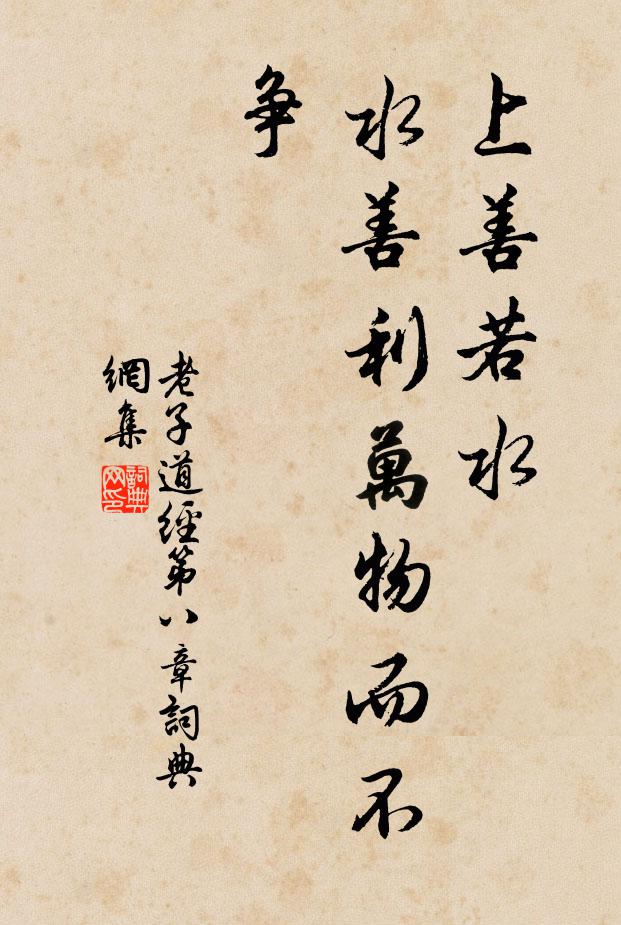 上善若水
水善利萬物而不
争
老子道經第八章詞典
網集
詞典网印